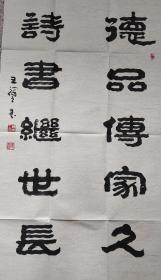 德品傳家久
詩書繼世長